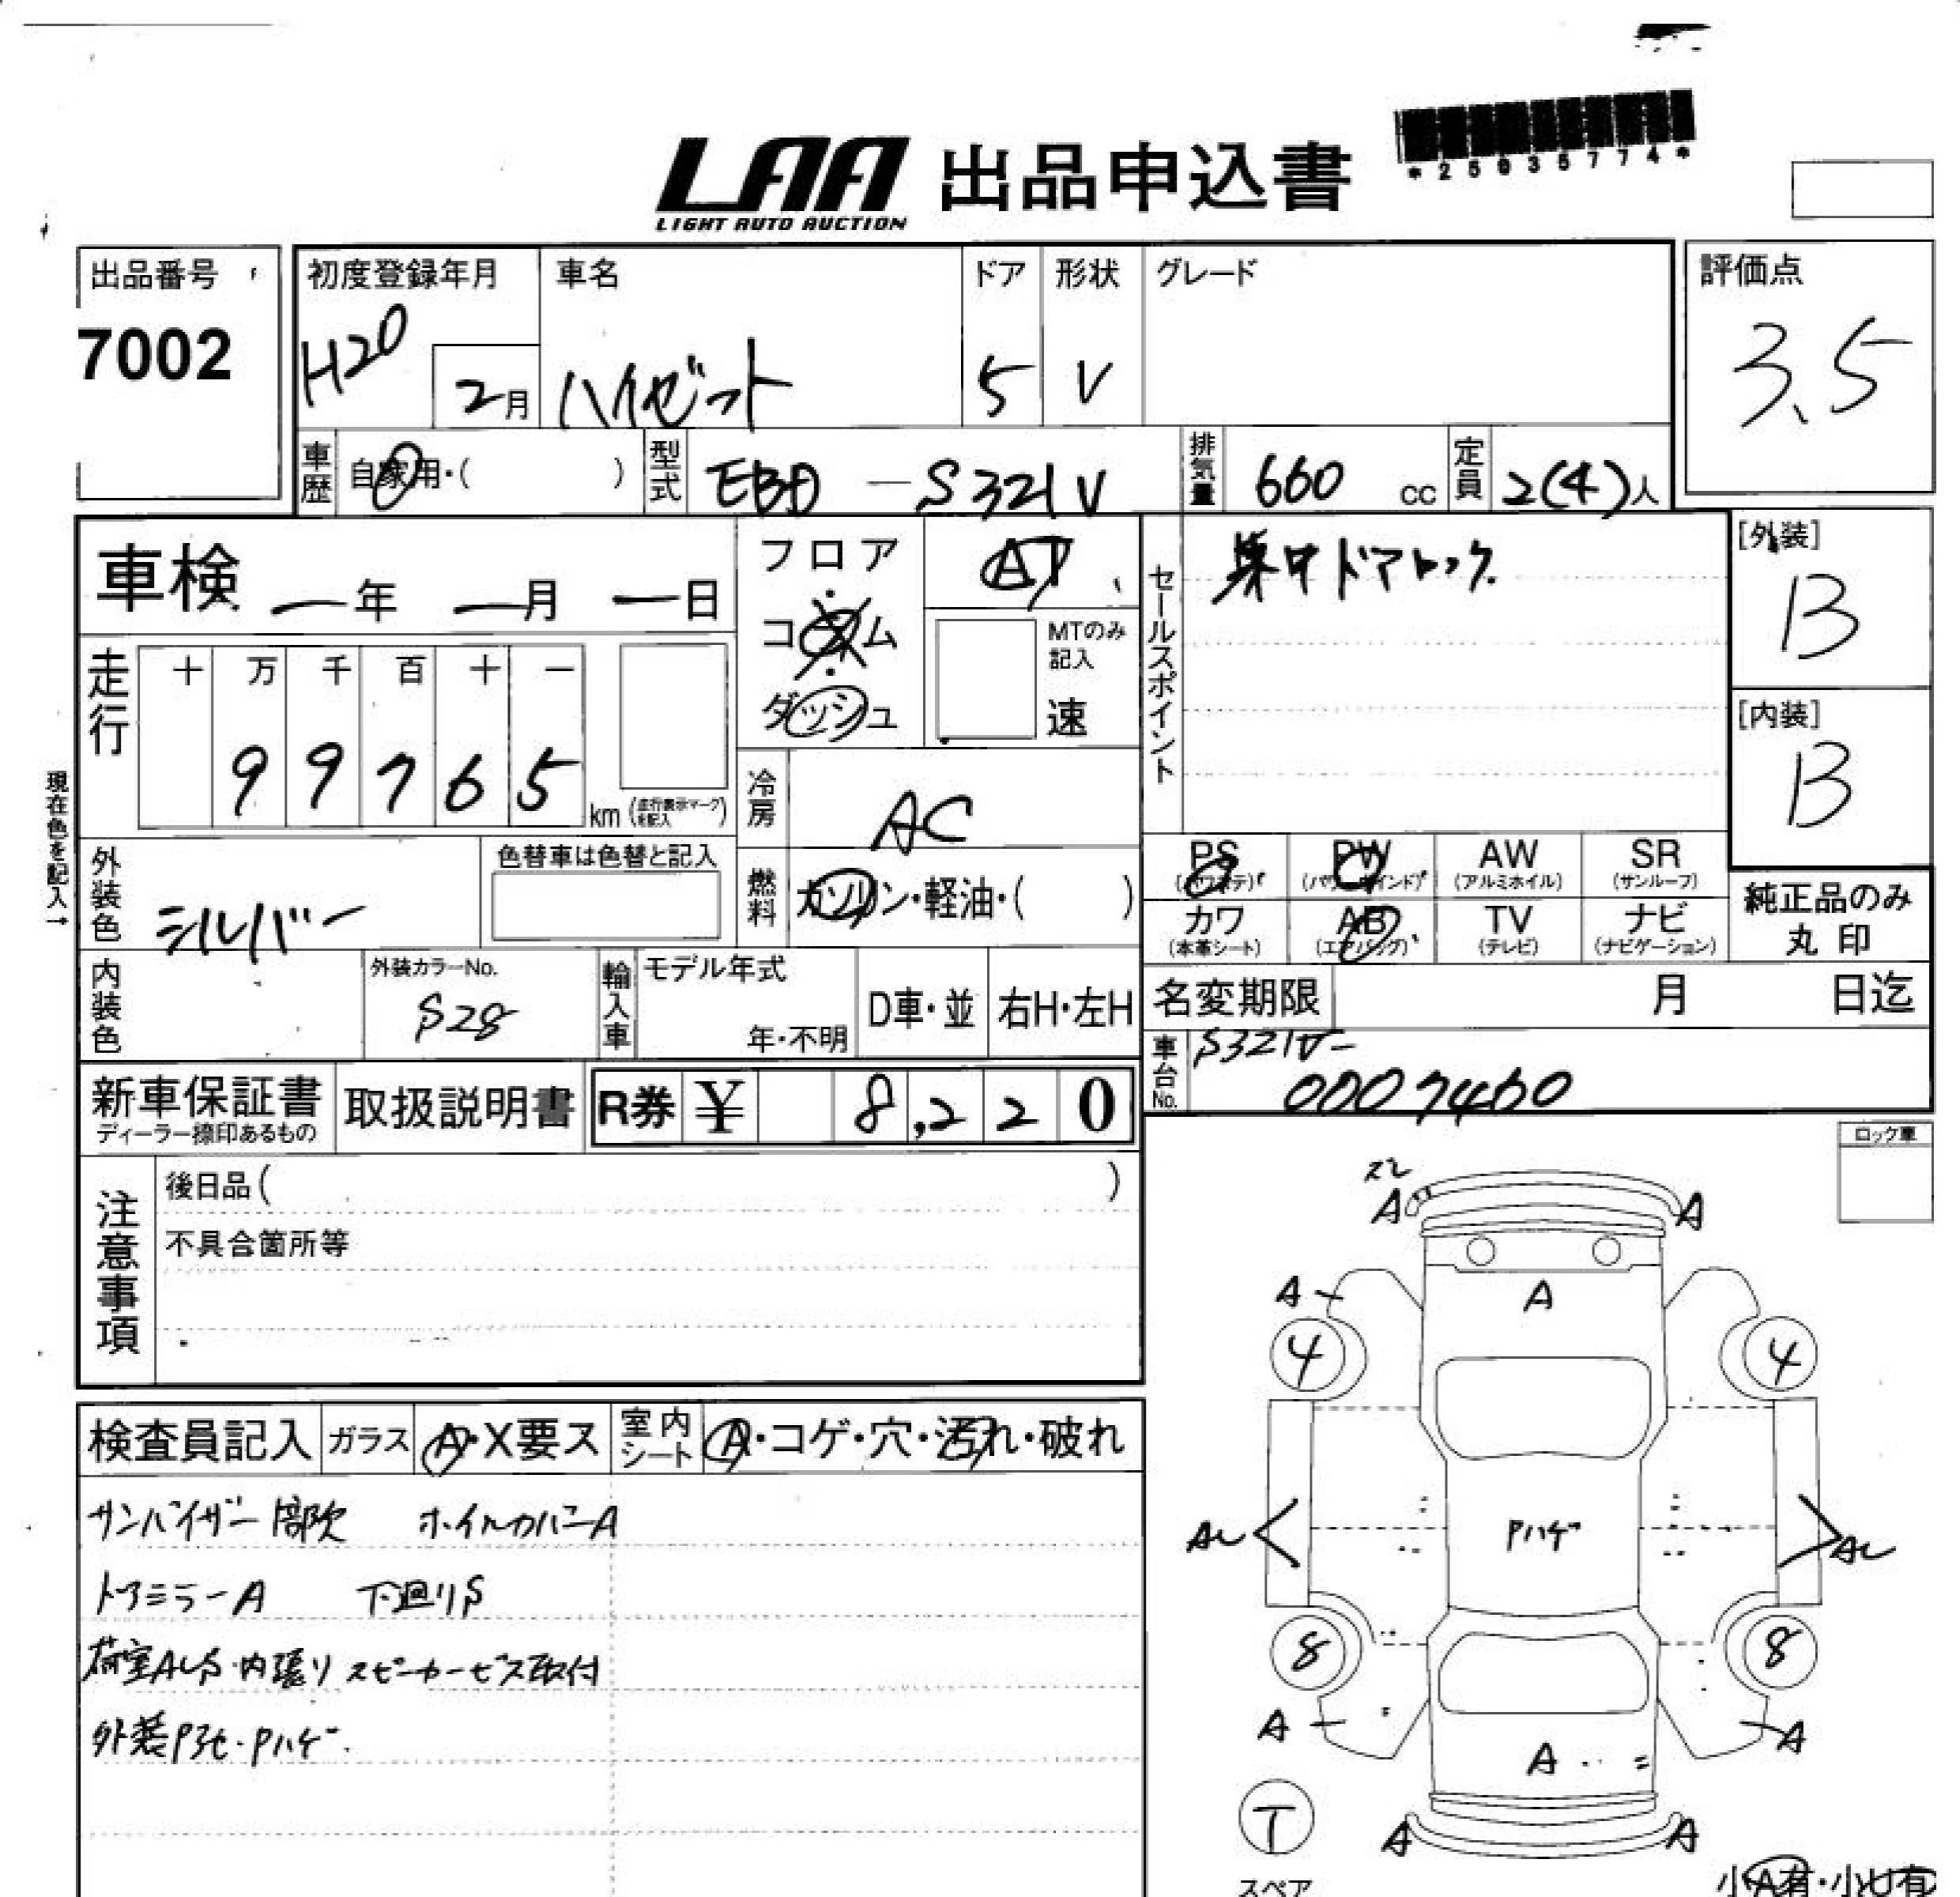 LAA 出品申込書
LIGHT AUTO AUCTION
*25035774*
出品番号
7002
初度登録年月
H20
2月
車名
ハイゼット
ドア
5
形状
V
グレード
評価点
3.5
車歴
自家用・( )
型式
EBD-S321V
排気量
660 cc
定員
2(4)人
車検 ー年 ー月 ー日
フロア・コラム・ダッシュ
AT
MTのみ記入
速
セールスポイント
集中ドアロック
[外装]
B
[内装]
B
走行
十 万 千 百 十 一
9 9 7 6 5 km (走行表示マークを記入)
現在色を記入→
冷房
AC
外装色
シルバー
色替車は色替と記入
燃料
ガソリン・軽油・( )
PS
(パワステ)
PW
(パワーウインド)
AW
(アルミホイル)
SR
(サンルーフ)
カワ
(本革シート)
AB
(エアバッグ)
TV
(テレビ)
ナビ
(ナビゲーション)
純正品のみ
丸印
内装色
外装カラーNo.
S28
輸入車
モデル年式
年・不明
D車・並
右H・左H
名変期限 月 日迄
車台No.
S321V-
0007460
新車保証書
ディーラー捺印あるもの
取扱説明書
R券 ¥ 8,220
ロック車
注意事項
後日品( )
不具合箇所等
ズレ
A A
A A
4 4
AU Pハゲ AU
8 8
A A
A
A A
T
スペア
小A有・小U有
検査員記入 ガラス A・X要ス 室内シート A・コゲ・穴・汚れ・破れ
サンバイザー部欠 ホイルカバーA
ドアミラーA 下廻りS
荷室AUS・内張りスピーカービス取付
外装Pヨセ・Pハゲ